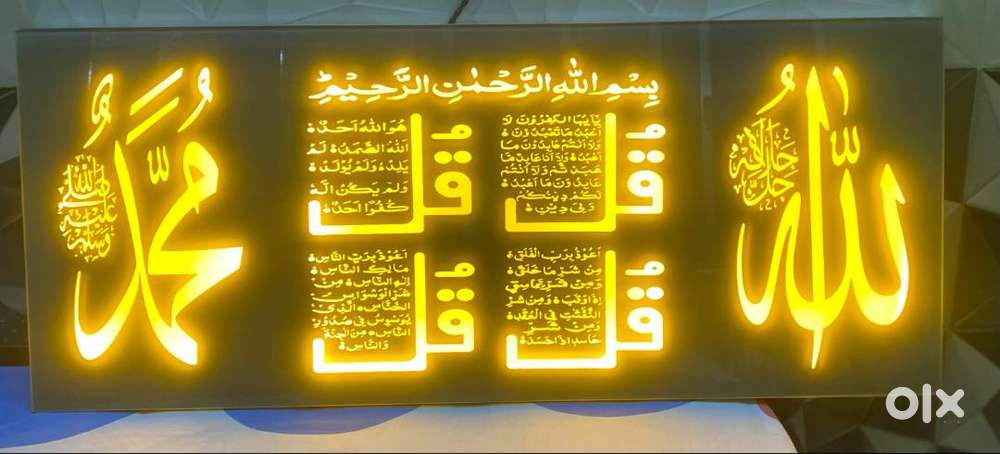 الله
جل جلاله
بِسْمِ اللهِ الرَّحْمٰنِ الرَّحِيْمِ
قُلْ
يايها الكفرون لا
اعبد ما تعبدون
ولا انتم عابدون ما
اعبد ولا انا عابد ما
عبدتم ولا انتم
عابدون ما اعبد
لكم دينكم
ولي دين
قُلْ
هو الله احد
الله الصمد لم
يلد ولم يولد
ولم يكن له
كفوا احد
قُلْ
اعوذ برب الفلق
من شر ما خلق
ومن شر غاسق
اذا وقب ومن شر
النفثت في العقد
ومن شر
حاسد اذا حسد
قُلْ
اعوذ برب الناس
مالك الناس
اله الناس من
شر الوسواس
الخناس الذي
يوسوس في صدور
الناس من الجنة
والناس
مُحَمَّد
صلى الله عليه وسلم
olx